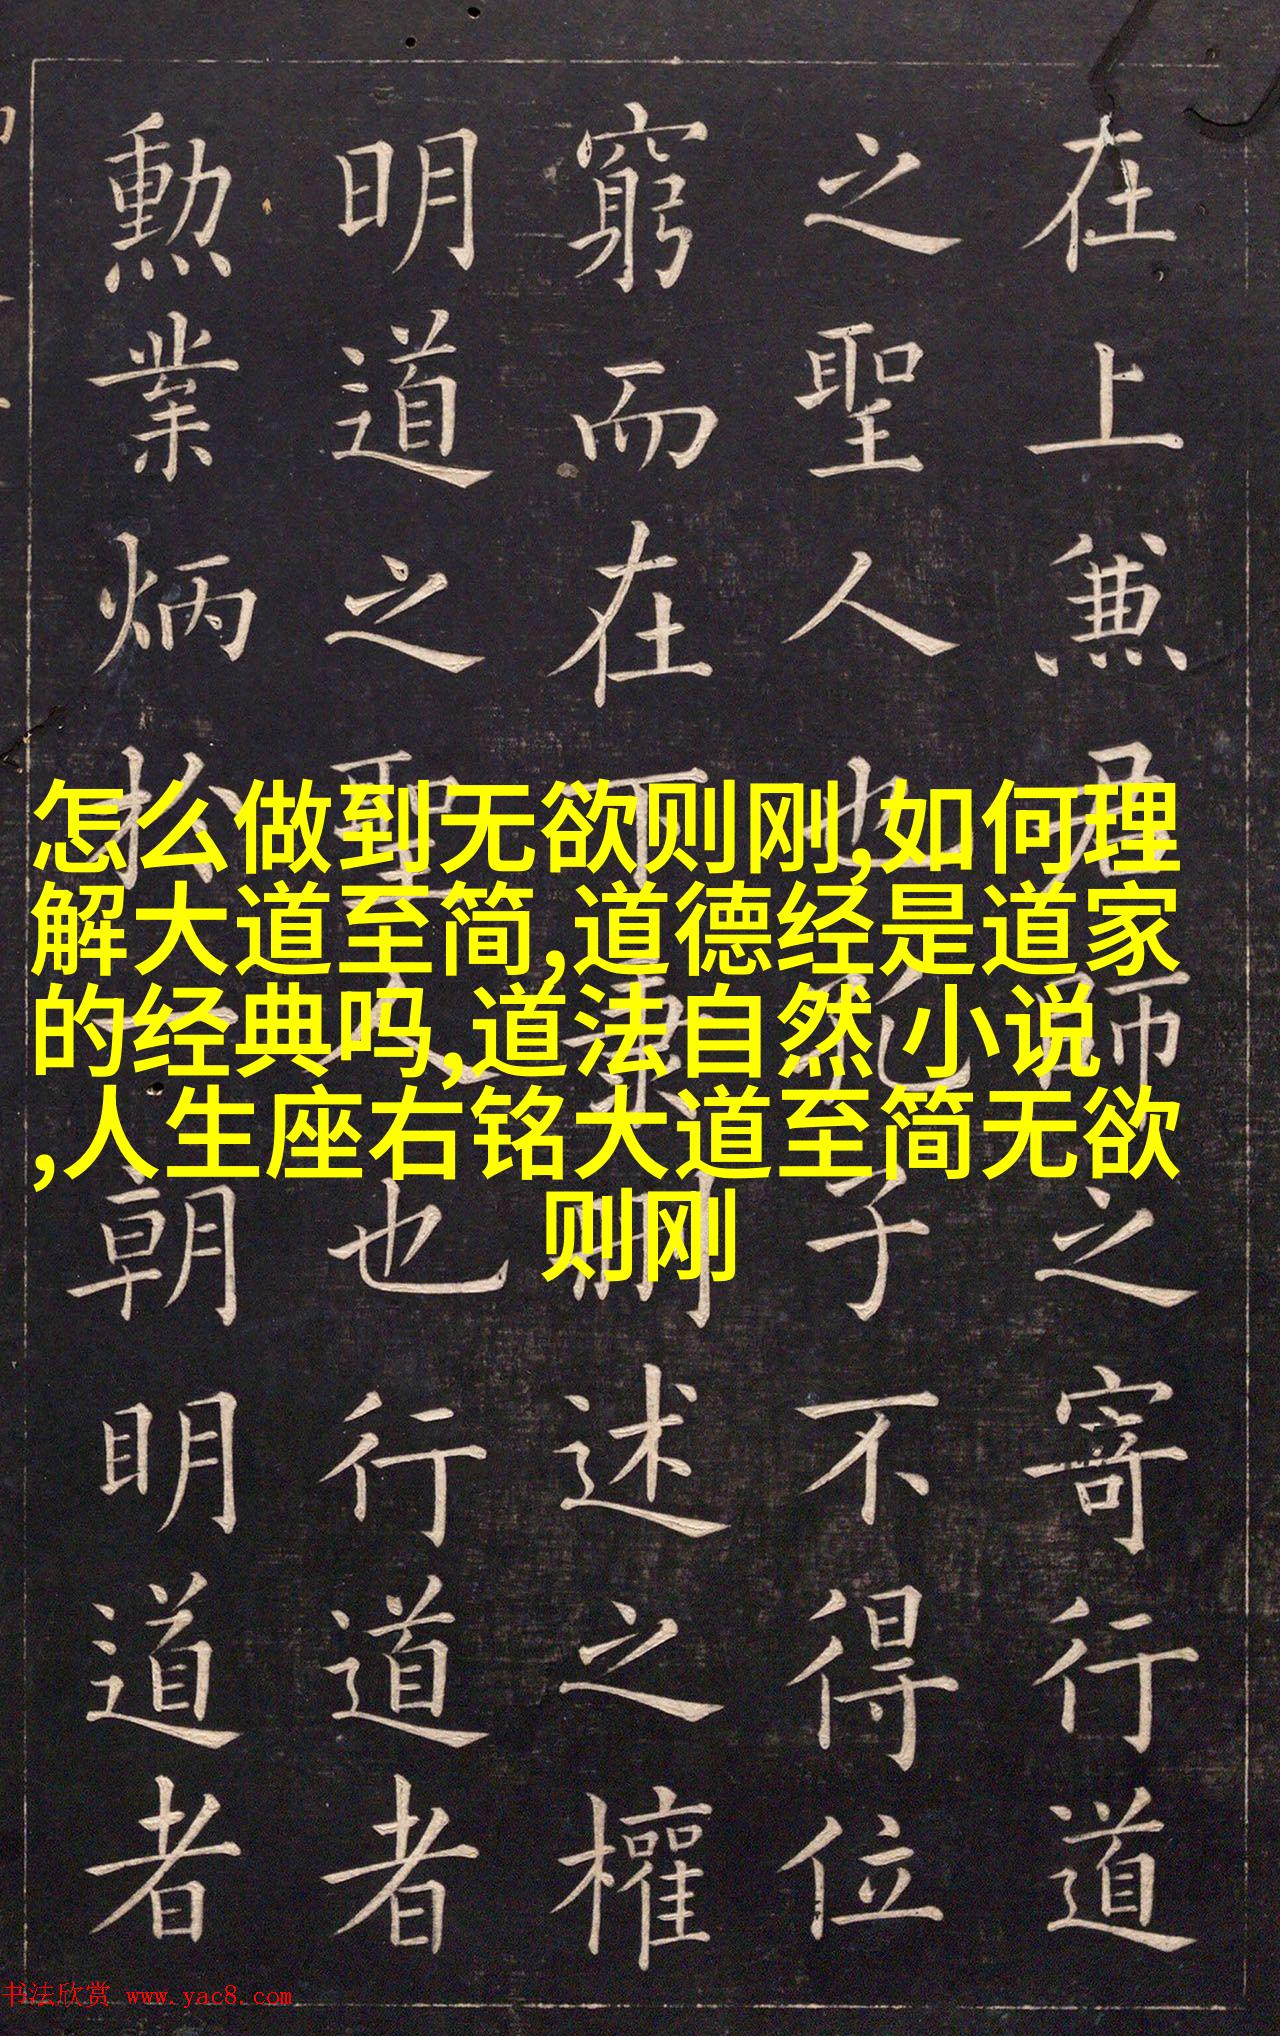 在上兼君師之寄行道
之聖人也孔子不得位
窮而在下兼刪述之權
明道之聖人也行道者
勳業炳於一朝明道者
怎么做到无欲则刚,如何理
解大道至简,道德经是道家
的经典吗,道法自然 小说
,人生座右铭大道至简无欲
则刚
书法欣赏 www.yac8.com